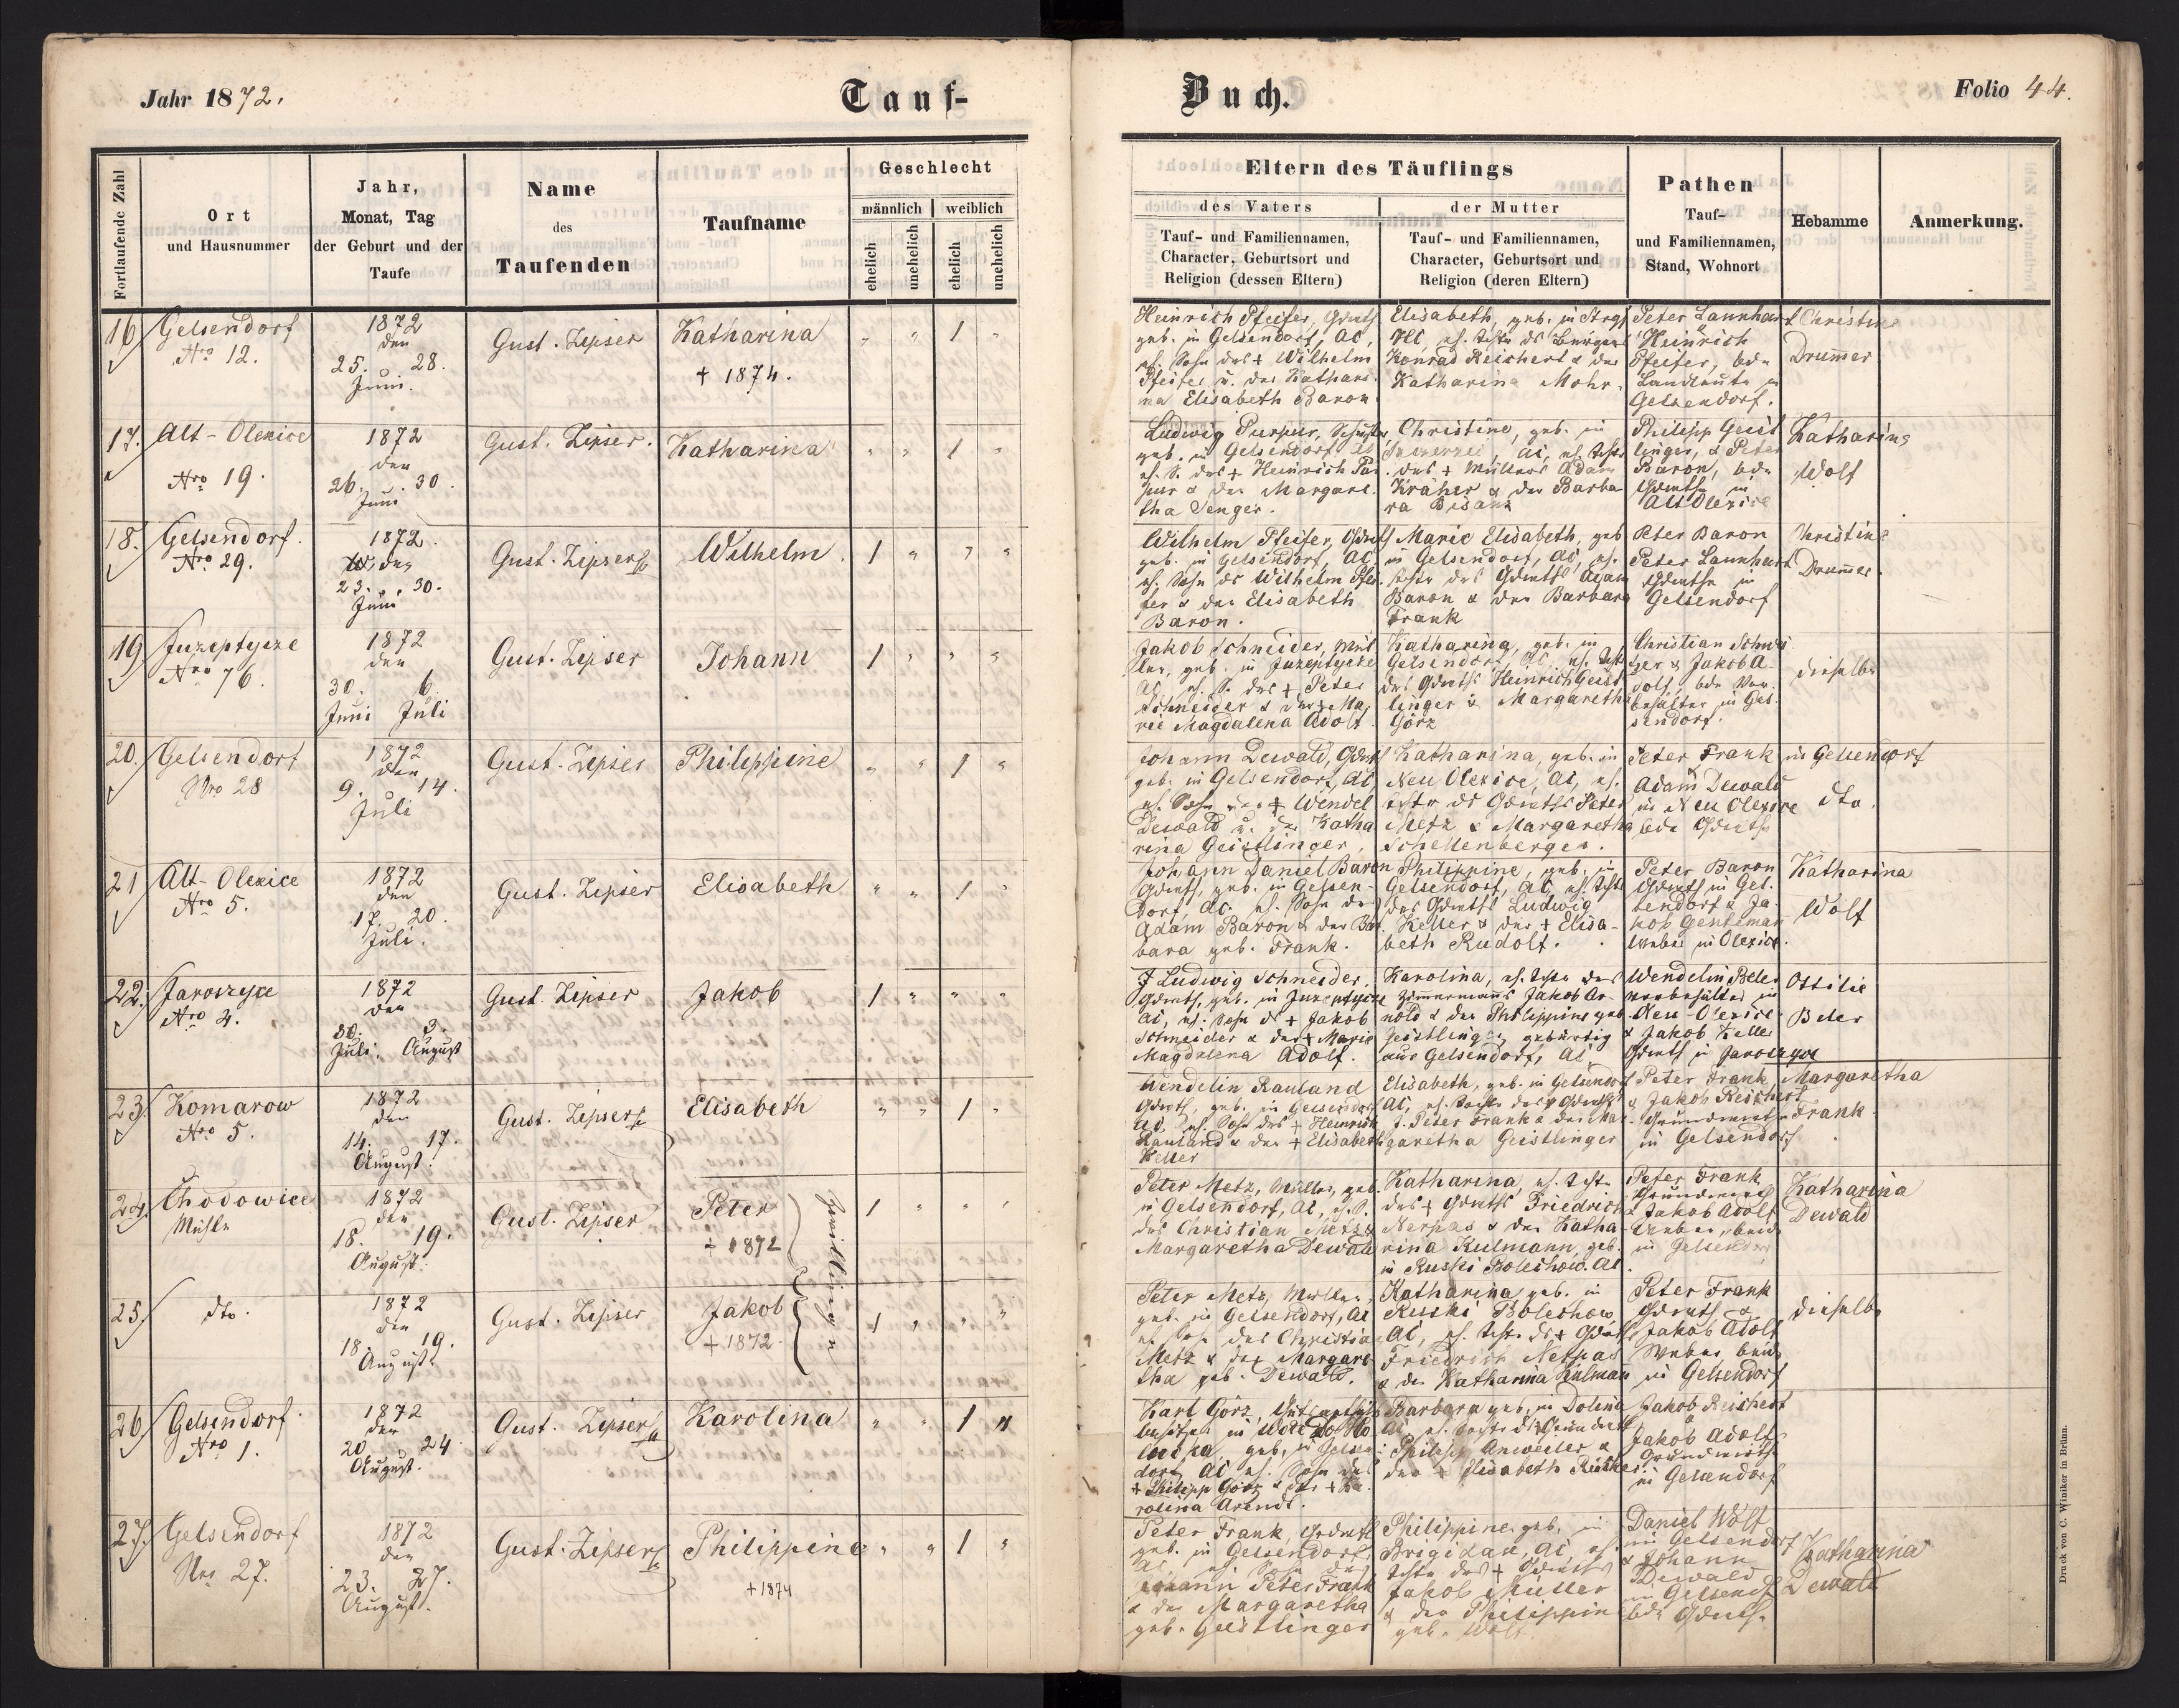 Jahr 1872.
Tauf-
Buch.
Folio 44.
Fortlaufende Zahl
Ort
und Hausnummer
Jahr,
Monat, Tag
der Geburt und der
Taufe
Name
des
Taufenden
Taufname
Geschlecht
männlich
weiblich
ehelich
unehelich
ehelich
unehelich
Eltern des Täuflings
des Vaters
Tauf- und Familiennamen,
Character, Geburtsort und
Religion (dessen Eltern)
der Mutter
Tauf- und Familiennamen,
Character, Geburtsort und
Religion (deren Eltern)
Pathen
Tauf-
und Familiennamen,
Stand, Wohnort
Hebamme
Anmerkung.
16 Gelsendorf
Nro 12.
1872
den
25. 28.
Juni.
Gust. Zipser
Katharina
+ 1874.
" " 1 "
Heinrich Pfeifer,
geb. in Gelsendorf, AC,
eh. Sohn des + Wilhelm
Pfeifer u. der Kathari-
na Elisabeth Baron.
Elisabeth, geb. in
Konrad Reichert & der
Katharina Mohr.
Peter Launhart
Heinrich
Pfeifer, bde
Landleute in
Gelsendorf.
Christine
Drumer
17. Alt-Olexice
Nro 19.
1872
den
26. 30.
Juni
Gust. Zipser.
Katharina
" " 1 "
Ludwig Purpur, Schuster,
geb. in Gelsendorf
eh. S. des + Heinrich Pur-
pur & der Margare-
tha Senger.
Christine, geb. in
AC, eh. Tochter
des + Müllers Adam
Kräher & der Barba
ra Bisanz
Philipp Geist
linger, & Peter
Baron, bde
Grdwthe in
Alt Olexice
Katharina
Wolf
18. Gelsendorf.
Nro 29.
1872.
den
23. 30.
Juni
Gust. Zipser
Wilhelm.
1 " " "
Wilhelm Pfeifer, Grdwth
geb. in Gelsendorf, AC,
eh. Sohn des Wilhelm Pfei-
fer & der Elisabeth
Baron.
Marie Elisabeth, geb
in Gelsendorf, AC, eh.
Tochter des Grdwths Adam
Baron & der Barbara
Frank
Peter Baron
Peter Launhart
Grdwthe in
Gelsendorf
Christine
Drumer.
19 Juzeptycze
Nro 76.
1872
den
30. 6.
Juni Juli
Gust. Zipser
Johann
1 " " "
Jakob Schneider, Mül
ler, geb. in Juzeptycze
AC, eh. S. des + Peter
Schneider & der + Ma
rie Magdalena Adolf.
Katharina, geb. in
Gelsendorf, AC, eh. Tcht
des Grdwths Heinrich Geist
linger & Margaretha
Görz
Christian Schnei
der & Jakob A
dolf, bde
in Gel
sendorf.
dieselbe
20. Gelsendorf
Nro 28
1872
den
9. 14.
Juli
Gust. Zipser
Philippine
" " 1 "
Johann Dewald, Grdwth
geb. in Gelsendorf, AC,
eh. Sohn des + Wendel
Dewald u. der Katha
rina Geistlinger.
Katharina, geb. in
Neu Olexice, AC, eh.
Tochter des Grdwths Peter
Metz & Margaretha
Schellenberger.
Peter Frank in Gelsendorf
Adam Dewald
in Neu Olexice
bde Grdwthe
dto.
21 Alt-Olexice
Nro 5.
1872
den
17. 20.
Juli.
Gust. Zipser
Elisabeth
" " 1 "
Johann Daniel Baron
Grdwth, geb. in Gelsen-
dorf, AC. eh. Sohn des
Adam Baron & der Bar-
bara geb. Frank.
Philippine, geb. in
Gelsendorf, AC, eh. Tcht
des Grdwths Ludwig
Keller & der + Elisa-
beth Rudolf.
Peter Baron
Grdwth in Gel-
sendorf & Ja-
kob Genteman
Weber in Olexice.
Katharina
Wolf
22. Jaroszyce
Nro 4.
1872
den
30. 3.
Juli. August
Gust. Zipser
Jakob
1 " " "
Ludwig Schneider,
Grdwth, geb. in Juzeptycze
AC, eh. Sohn des + Jakob
Schneider & der + Marie
Magdalena Adolf.
Karolina, eh. Tochter des
Zimmermanns Jakob Ar-
nold & der Philippine geb.
Geistlinger, gebürtig
aus Gelsendorf, AC
Wendelin Beler
in
Neu-Olexice
& Jakob Keller
Grdwth in Jaroszyce
Ottilie
Beler
23. Komarow
Nro 5.
1872
den
14. 17.
August.
Gust. Zipser
Elisabeth
" " 1 "
Wendelin Rauland
Grdwth, geb. in Gelsendorf
AC, eh. Sohn des + Heinrich
Rauland & der + Elisabeth
Keller
Elisabeth, geb. in Gelsendorf
AC, eh. Tochter des Grdwths
J. Peter Frank & der Mar-
garetha Geistlinger
Peter Frank,
& Jakob Reichert
Grundwirthe
in Gelsendorf
Margaretha
Frank.
24. Chodowice
Mühle
1872
den
18. 19.
August.
Gust. Zipser
Peter
+ 1872
Zwillinge
1 " " "
Peter Metz, Müller, geb.
in Gelsendorf, AC, eh. S.
des Christian Metz &
Margaretha Dewald
Katharina, eh. Tcht.
des + Grdwths Friedrich
Nerpas & der Katha-
rina Kulmann, geb.
in Ruski Bolechow. AC
Peter Frank
Grundwirth
& Jakob Adolf
Weber, beide
in Gelsendorf
Katharina
Dewald
25. dto.
1872
den
18. 19.
August.
Gust. Zipser
Jakob
+ 1872.
1 " " "
Peter Metz, Müller,
geb. in Gelsendorf, AC
eh. Sohn des Christian
Metz & der Margare
tha geb. Dewald.
Katharina geb. in
Ruski Bolechow
AC, eh. Tcht. des + Grdwths
Friedrich Nerpas
& der Katharina Kulman
Peter Frank
Grdwth &
Jakob Adolf
Weber beide
in Gelsendorf
dieselbe
26. Gelsendorf.
Nro 1.
1872
den
20. 24.
August.
Gust. Zipser
Karolina
" " 1 "
Karl Görz,
besitzer in
geb. in Gelsen-
dorf, AC, eh. Sohn des
+ Philipp Görz & der + Ka-
rolina Arendt.
Barbara geb. in Dolina
AC, eh. Tochter des Grundwth
Philipp Anweiler &
der + Elisabeth
Jakob Reichert
&
Jakob Adolf
Grundwirthe
in Gelsendorf
27. Gelsendorf
Nro 27.
1872
den
23. 27.
August.
Gust. Zipser
Philippine
+ 1874
" " 1 "
Peter Frank, Grdwth
geb. in Gelsendorf,
AC, eh. Sohn des
Johann Peter Frank
& der Margaretha
geb. Geistlinger
Philippine geb. in
Brigidau, AC, eh.
Tchtr des + Grdwths
Jakob Müller
& der Philippine
geb. Wolf.
Daniel Wolf
in Gelsendorf
& Johann
Dewald
in Gelsend.
bde Grdwthe
Katharina
Dewald
Druck von C. Winiker in Brünn.